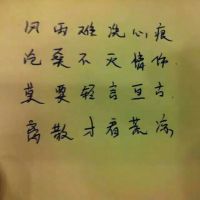 风雨难洗心痕
沧桑不灭情
莫要轻言亘古
离散才看荒凉